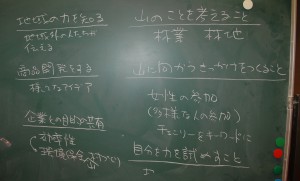 地域の力を知る
地域外の人たちが
伝える
商品開発をする
様々なアイデア
企業との目的共有
効率性
環境保全のまちづくり
山のことを考えること
林業 林地
山に向かうきっかけをつくること
女性の参加
(多様な人の参加)
チェンソーをキーワードに
自分の力を試めすこと